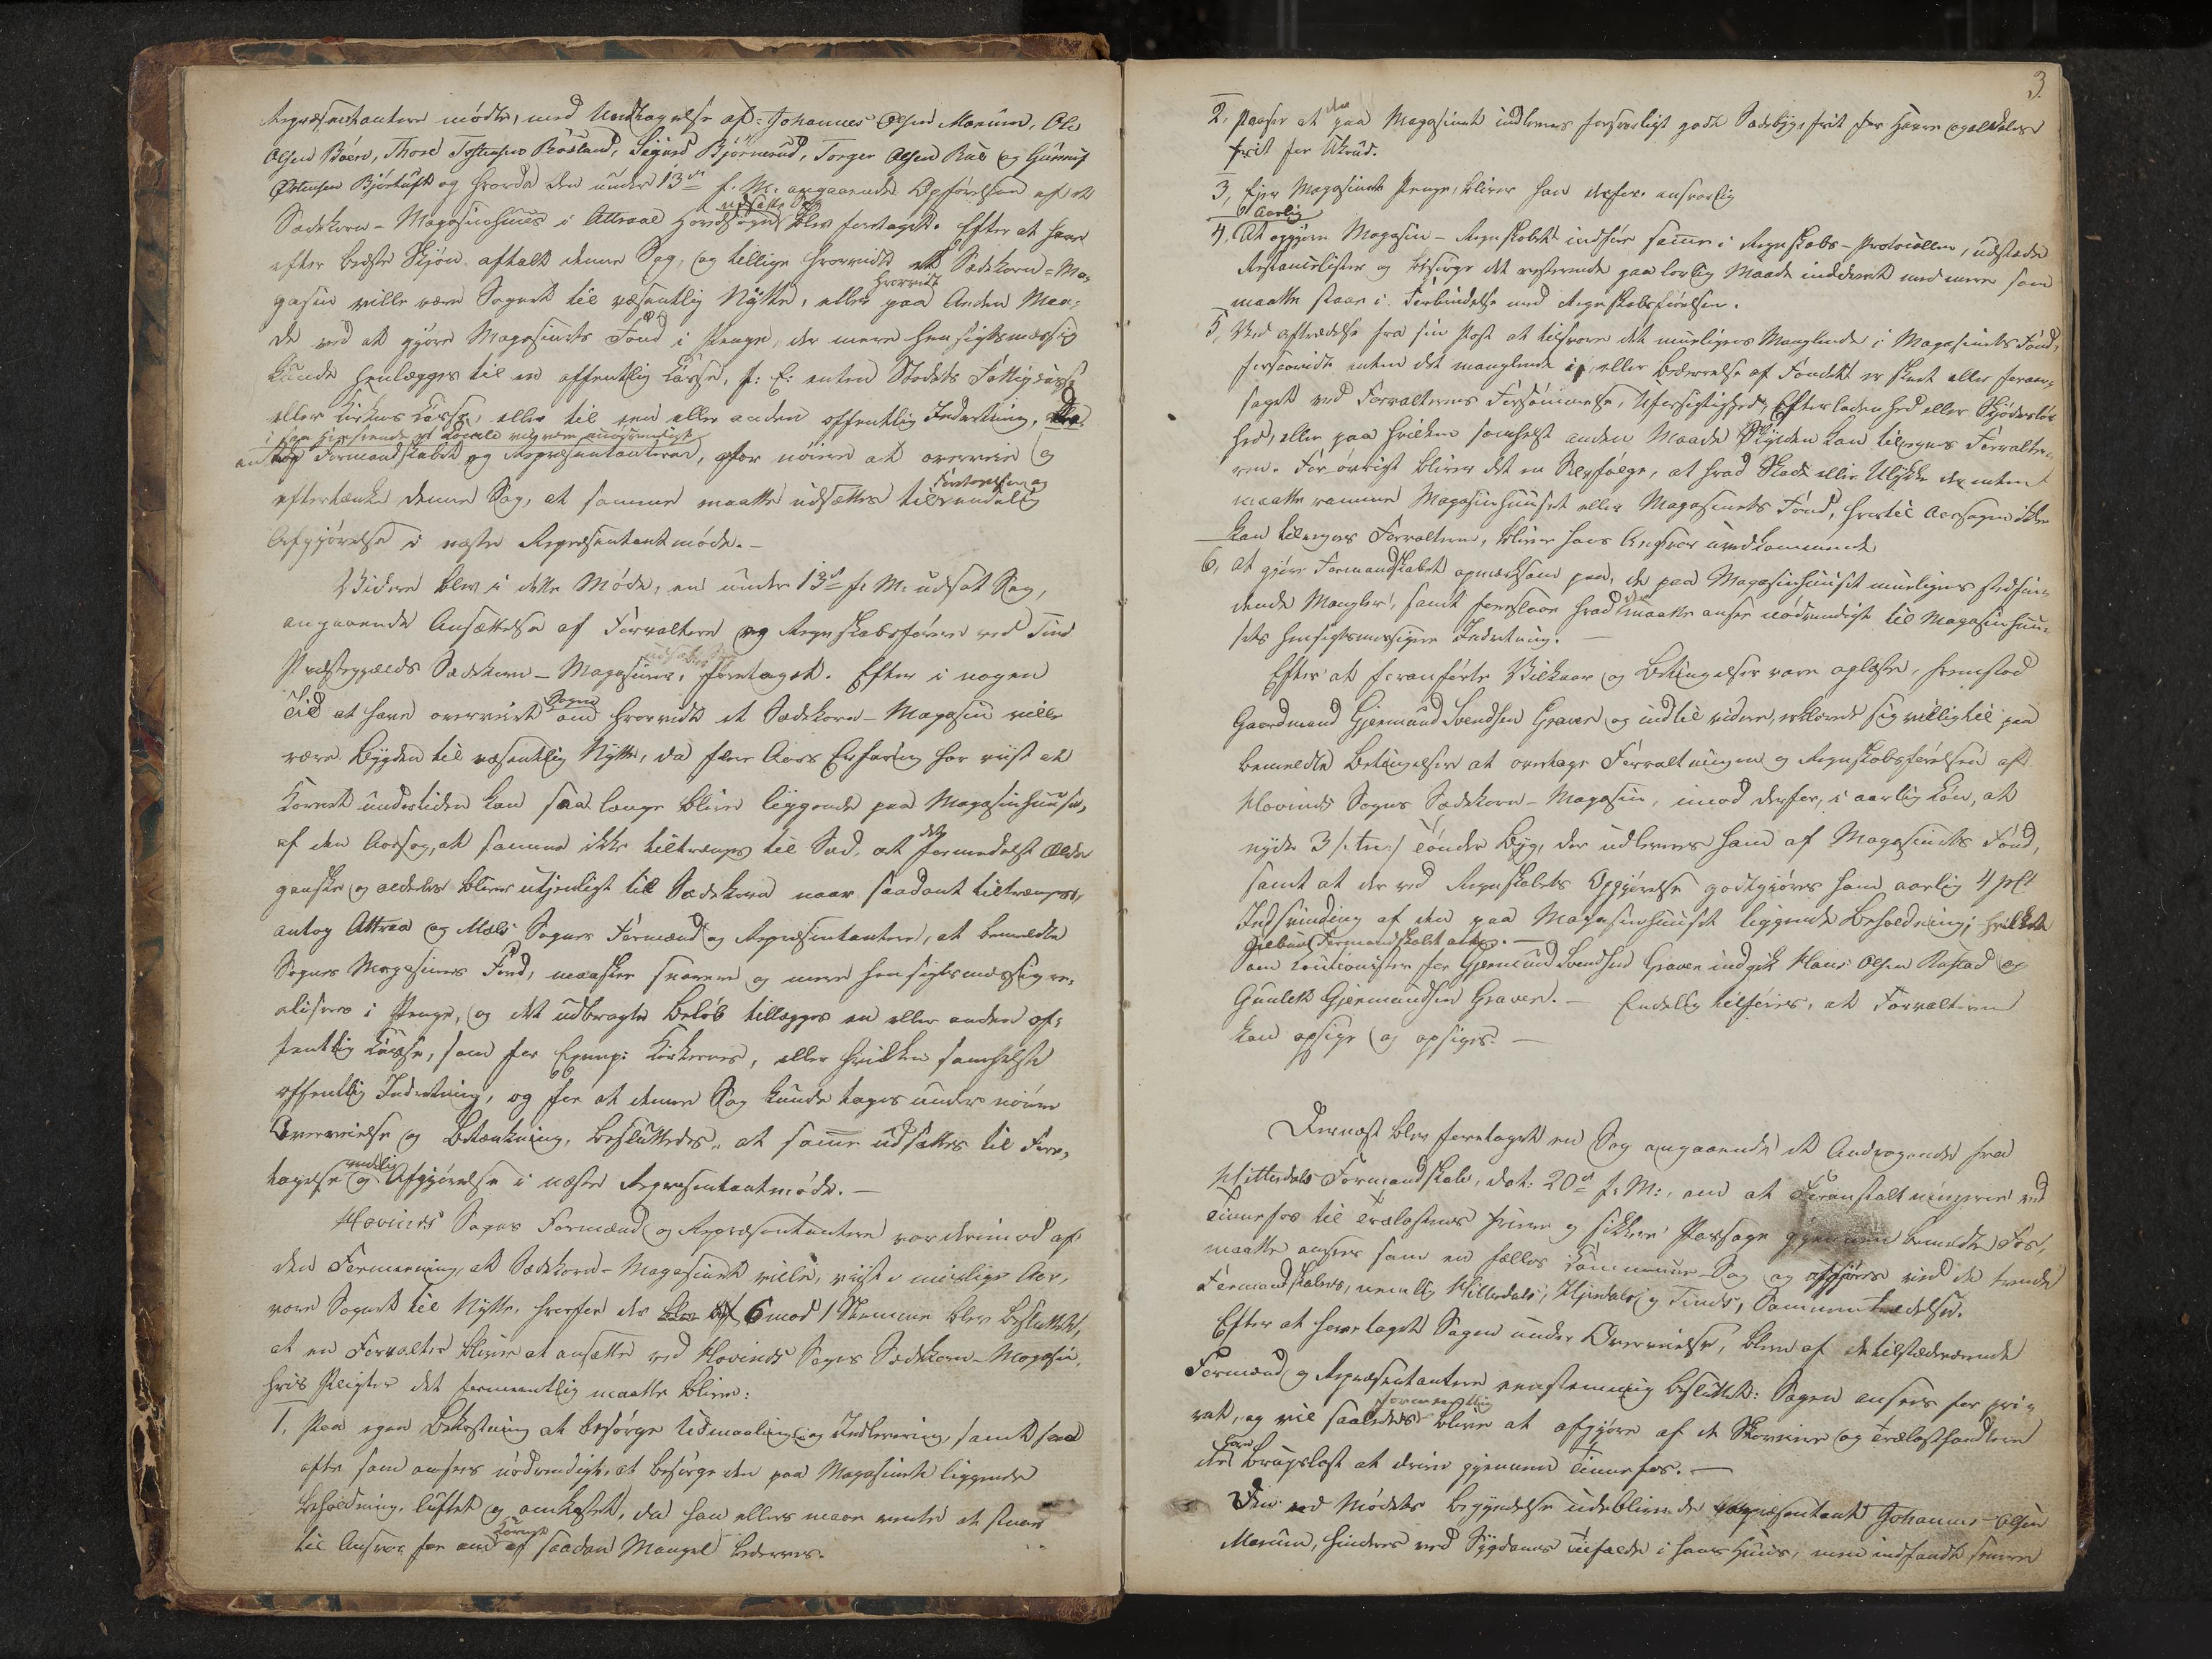 Repræsentantere mödte, med Undtagelse af: Johannes Olsen Marum, Ole
Olsen Böen, Thore Torstensen Rösland, Sigurd Björnerud, Torger Olsen Rue og Gunnuf
Östensen Björtuft og hvorda den under 13de f. M. angaaende Opförelsen af et
udsatte Sag
Sædekorn-Magasinhuus i Attraae Hovedsogn blev foretaget. Efter at have
efter bedste Skjön aftalt denne Sag, og tillige hvorvidt et Sædekorn-Ma-
hvorvidt
gasin ville være Sognet til væsentlig Nytte, eller paa anden Maa-
de ved at gjöre Magasinets Fond i Penge, der mere hensigtsmæssig
kunde henlægges til en offentlig Casse, f: E: enten Stedets Fattigcasse
eller Kirkens Casse, eller til een eller anden offentlig Indretning,
i saa Henseende et Locale vilde være
antog Formandskabet og Repræsentanterne, for nöiere at overveie og
Foretagelse og
eftertænke denne Sag, at samme maatte udsættes til endelig
Afgjörelse i næste Repræsentantmöde. –
Videre blev i dette Möde, en under 13de f. M. udsat Sag,
angaaende Ansættelse af Forvaltere og Regnskabsförere ved Tind
Præstegjælds Sædekorn-Magasiner, foretaget. Efter i nogen
Sagen
Tid at have overveiet om hvorvidt et Sædekorn-Magasin ville
være Bygden til væsentlig Nytte, da flere Aars Erfaring har viist at
Kornet undertiden kan saa længe blive liggende paa Magasinhuuset,
det
af den Aarsag, at samme ikke tiltrænges til Sæd, at formedelst Ælde
ganske og aldeles bliver utjenligt til Sædekorn naar saadant tiltrænges,
antog Attraa og Mæls Sognes Formænd og Repræsentantere, at bemeldte
Sognes Magasiners Fond, maaskee snarere og mere hensigtsmæssig re-
aliseres i Penge, og det udbragte Belöb tillægges en eller anden of-
fentlig Casse, som for Exemp: Kirkernes, eller hvilken somhelst
offentlig Indretning, og for at denne Sag kunde tages under nöiere
Overveielse og Betænkning, besluttedes, at samme udsættes til Fore-
endelig
tagelse og Afgjörelse i næste Repræsentantmöde. –
Hovinds Sogns Formænd og Repræsentantere var derimod af
den Formening, at Sædekorn-Magasinet vilde, viist i muelige Aar,
være Sognet til Nytte, hvorfor der 6 mod 1 Stemme blev besluttet,
at en Forvalter bliver at ansætte ved Hovinds Sogns Sædekorn-Magasin,
hvis Pligter det formeentlig maatte blive:
1, Paa egen Bekostning at besörge Udmaaling og Indlevering, samt saa
ofte som ansees nödvendigt, at besörge den paa Magasinet liggende
Beholdning, luftet og omkastet, da han ellers maae vente at staae
Kornet
til Ansvar for om af saadan Mangel bederves.
3.
der
2, Passer at paa Magasinet indleveres forsvarligt godt Sædebyg, frit for Havre og aldeles
frit for Ukrud.
3, Ejer Magasinet Penge, bliver han derfor ansvarlig
aarlig
4, At opgjöre Magasin-Regnskabet indföre samme i Regnskabs-Protocollen, udstæde
Restancelister og besörge det resterende paa lovlig Maade inddrevet med mere som
maatte staae i Forbindelse med Regnskabsförelsen.
5, Ved aftrædelse fra sin Post at tilsvare det mueligens Manglende i Magasinets Fond,
forsaavidt enten det manglende i, eller bedærvelse af Fondet er skeet eller foraar-
saget ved Forvalterens Forsömmelse, Uforsigtighed, Efterladenhed eller Skjödeslös-
hed, eller paa hvilken somhelst anden Maade Skylden kan tilregnes Forvalte-
ren. For övrigt bliver det en Selvfölge, at hvad Skade eller Ulykke der enten
maatte ramme Magasinhuuset eller Magasinets Fond, hvortil Aarsagen ikke
kan tilregnes Forvalteren, bliver hans Ansvar uvedkommende
6, At gjöre Formandskabet opmærksom paa, de paa Magasinhuuset mueligens stedfin-
dende Mangler, samt foreslaae hvad maatte ansees nödvendigt til Magasinhuu-
sets hensigtsmæssigere Indretning. –
Efter at foranförte Vilkaar og Betingelser vare oplæste, fremstod
Gaardmand Gjermund Svendsen Graver og indtil videre, erklærede sig villig til paa
bemeldte Betingelser at overtage Forvaltningen og Regnskabsförelsen af
Hovinds Sogns Sædekorn-Magasin, imod derfor, i aarlig Lön, at
nyde 3 /: tre :/ Tönder Byg, der udleveres ham af Magasinets Fond,
samt at der ved Regnskabets Opgjörelse godtgjöres ham aarlig 4 pCt
Indsvinding af den paa Magasinhuuset liggende Beholdning; hvilket
Tilbud Formandskabet antog. –
Som Cautionister for Gjermund Svendsen Graver indgik Hans Olsen Rustad og
Gunleik Gjermundsen Graver. – Endelig tilföies, at Forvalteren
kan opsige og opsiges. –
Dernæst blev foretaget en Sag angaaende et Andragende fra
Hitterdals Formandskab, dat: 20de f. M:, om at Foranstaltningerne ved
Tinnefos til Trælastens friere og sikkrere Passage gjennem bemeldte Fos,
maatte ansees som en fælles Commune-Sag og afgjöres ved de trende
Formandskabers, nemlig Hitterdals, Hjerdals og Tinds, Sammentrædelser.
Efter at have taget Sagen under Overveielse, blev af de tilstædeværende
Formænd og Repræsentantere eenstemmig besluttet: Sagen ansees for pri-
formeentlig
vat, og vil saaledes bliver at afgjöre af de Skoveiere og Trælasthandlere
have
der Brugslast at drive gjennem Tinnefos. –
Den ved Mödets Begyndelse udeblivende Repræsentant Johannes Olsen
Marum, hindres ved Sygdoms Tilfælde i hans Huus, men indfandt senere